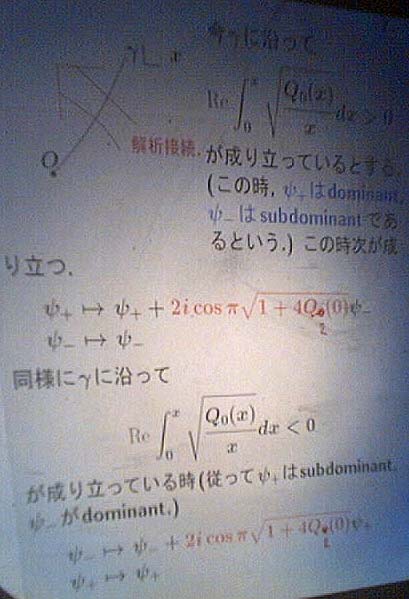 今γに沿って
γ x
Re ∫_0^x √(Q_0(x)/x) dx > 0
Q
解析接続.
が成り立っているとする.
(この時, ψ_+ はdominant,
ψ_- はsubdominantであ
るという.) この時次が成
り立つ.
ψ_+ ↦ ψ_+ + 2i cos π√(1 + 4Q_2(0)) ψ_-
ψ_- ↦ ψ_-
同様にγに沿って
Re ∫_0^x √(Q_0(x)/x) dx < 0
が成り立っている時(従ってψ_+ はsubdominant,
ψ_- がdominant.)
ψ_- ↦ ψ_- + 2i cos π√(1 + 4Q_2(0)) ψ_+
ψ_+ ↦ ψ_+